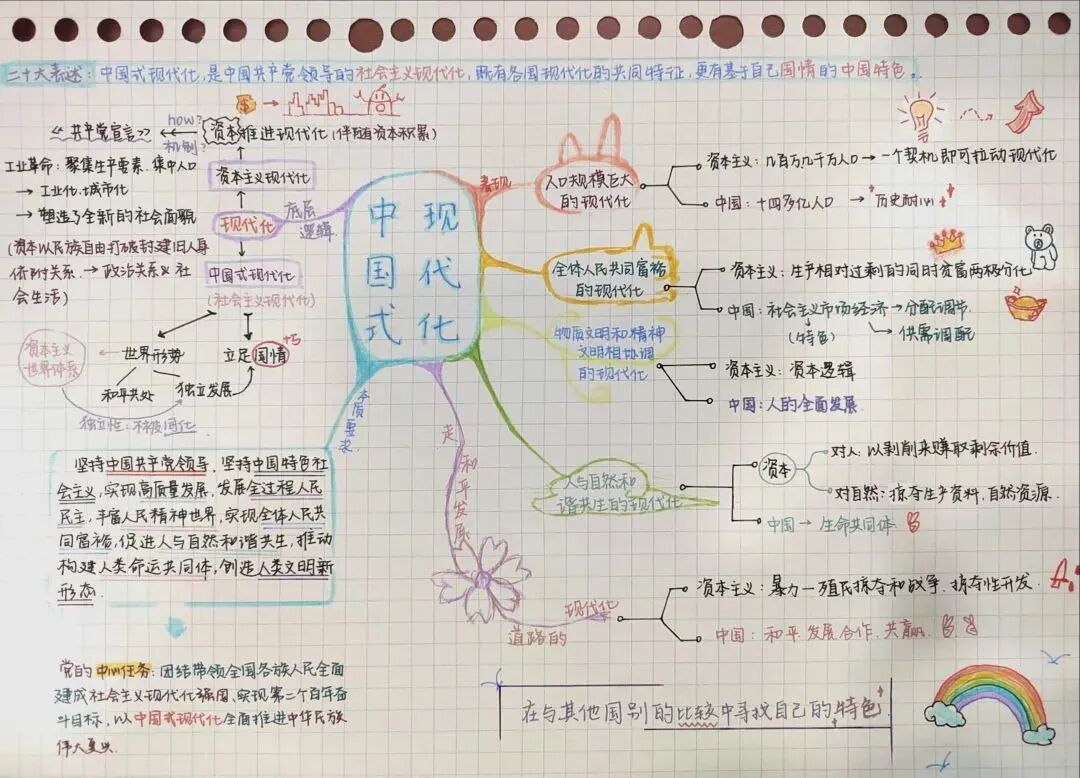 二十大表述：中国式现代化，是中国共产党领导的社会主义现代化，既有各国现代化的共同特征，更有基于自己国情的中国特色。
$
how?
机制?
《共产党宣言》
资本推进现代化（伴随资本积累）
工业革命：聚集生产要素、集中人口
→工业化、城市化
→塑造了全新的社会面貌
（资本以民族自由打破封建旧人身
依附关系→政治关系、社
会生活）
资本主义现代化
现代化
底层
逻辑
中国式现代化
（社会主义现代化）
世界形势
立足国情
资本主义
世界体系
和平共处
独立发展
独立性：不被同化
现代化
中国式
本质要求
坚持中国共产党领导，坚持中国特色社
会主义，实现高质量发展，发展全过程人民
民主，丰富人民精神世界，实现全体人民共
同富裕，促进人与自然和谐共生，推动
构建人类命运共同体，创造人类文明新
形态.
党的中心任务：团结带领全国各族人民全面
建成社会主义现代化强国、实现第二个百年奋
斗目标，以中国式现代化全面推进中华民族
伟大复兴.
表现
人口规模巨大
的现代化
资本主义：几百万几千万人口→一个契机即可拉动现代化
中国：十四多亿人口→"历史耐心"
全体人民共同富裕
的现代化
资本主义：生产相对过剩的同时贫富两极分化
中国：社会主义市场经济→分配调节
（特色）
供需调配
物质文明和精神
文明相协调
的现代化
资本主义：资本逻辑
中国：人的全面发展.
人与自然和
谐共生的现代化
资本
对人：以剥削来赚取剩余价值.
对自然：掠夺生产资料，自然资源.
中国→生命共同体
走和平发展
道路的
现代化
资本主义：暴力—殖民掠夺和战争、掠夺性开发.
中国：和平、发展、合作、共赢.
在与其他国别的比较中寻找自己的"特色"